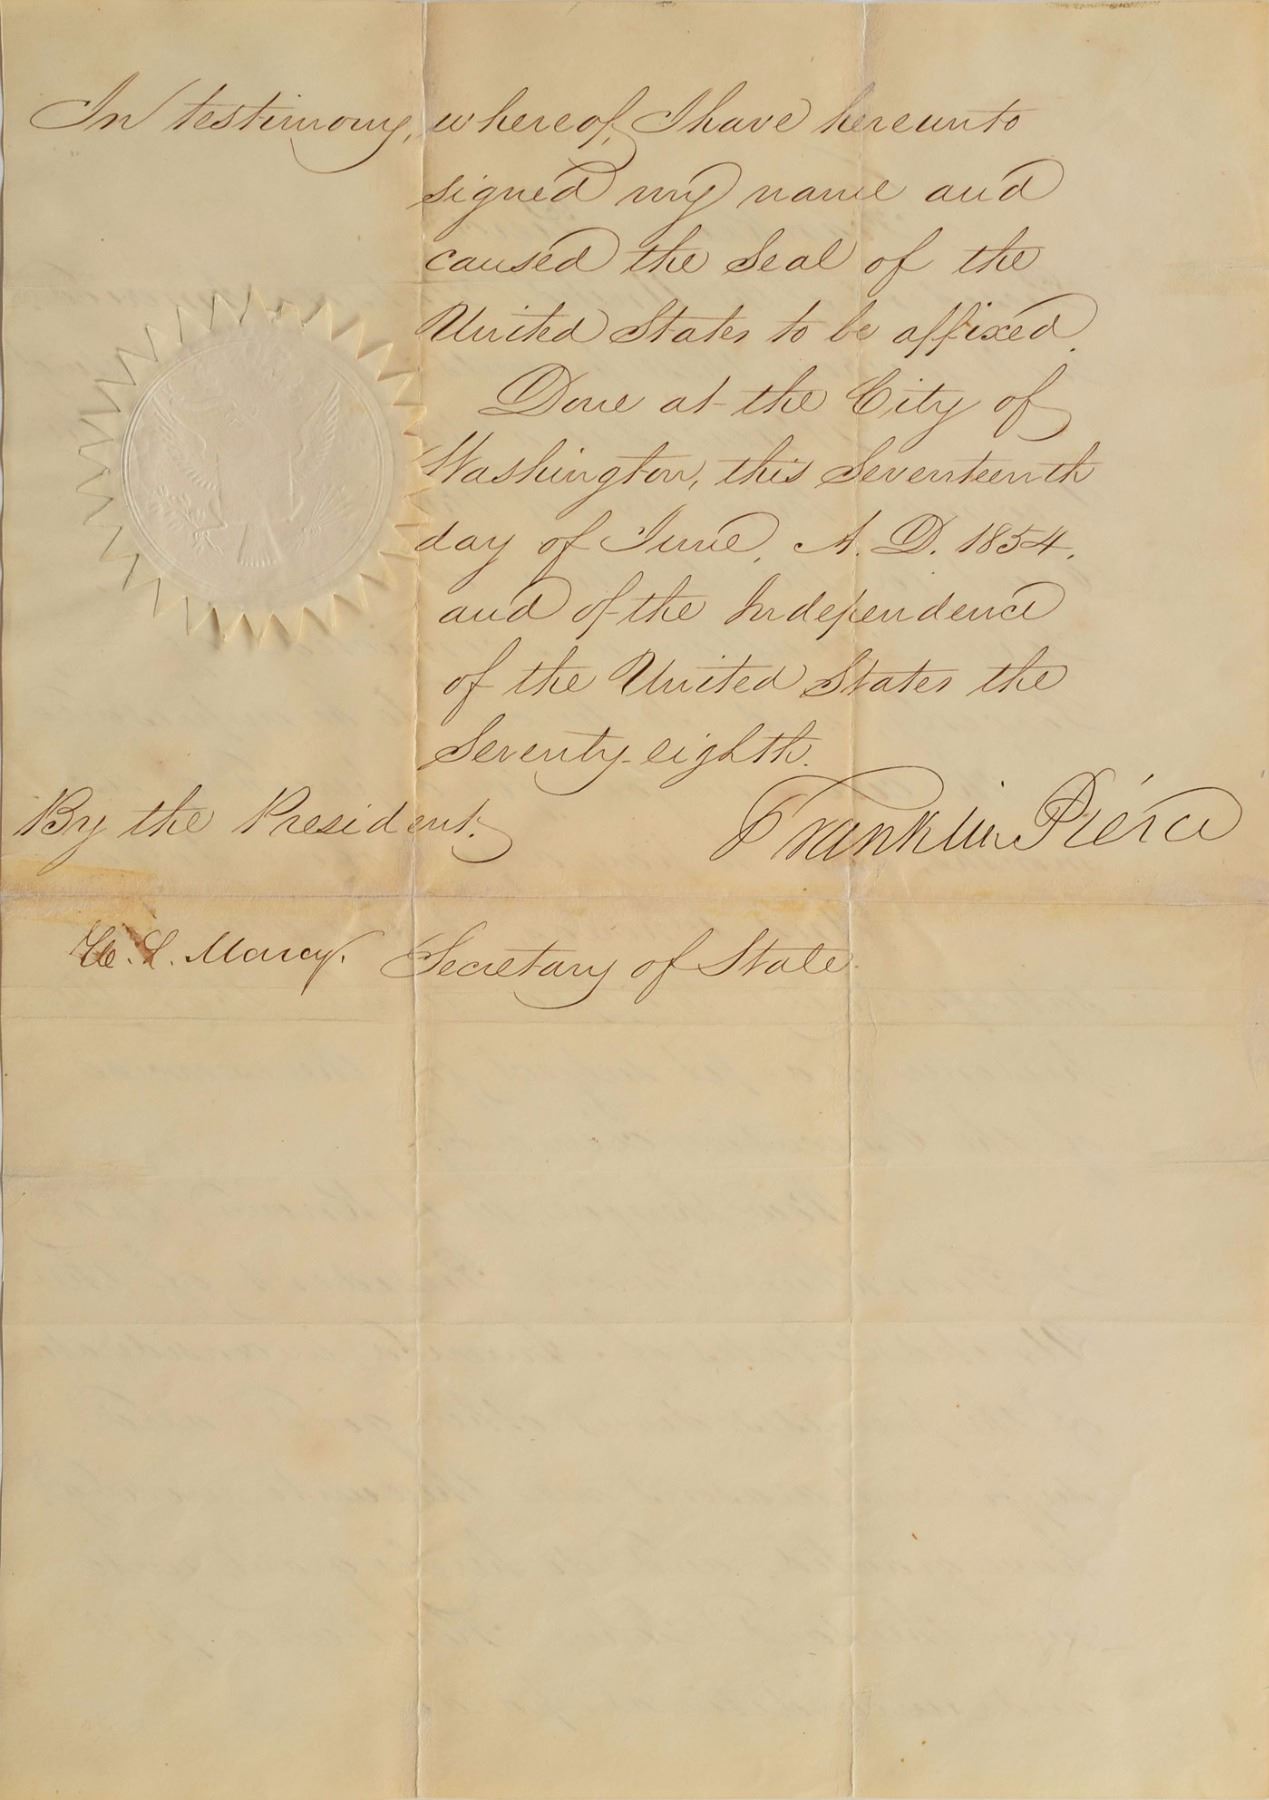 In testimony, whereof, I have hereunto
signed my name and
caused the Seal of the
United States to be affixed.
Done at the City of
Washington, this Seventeenth
day of June, A. D. 1854.
and of the Independence
of the United States the
Seventy-eighth.
Franklin Pierce
By the President.
W. L. Marcy. Secretary of State.